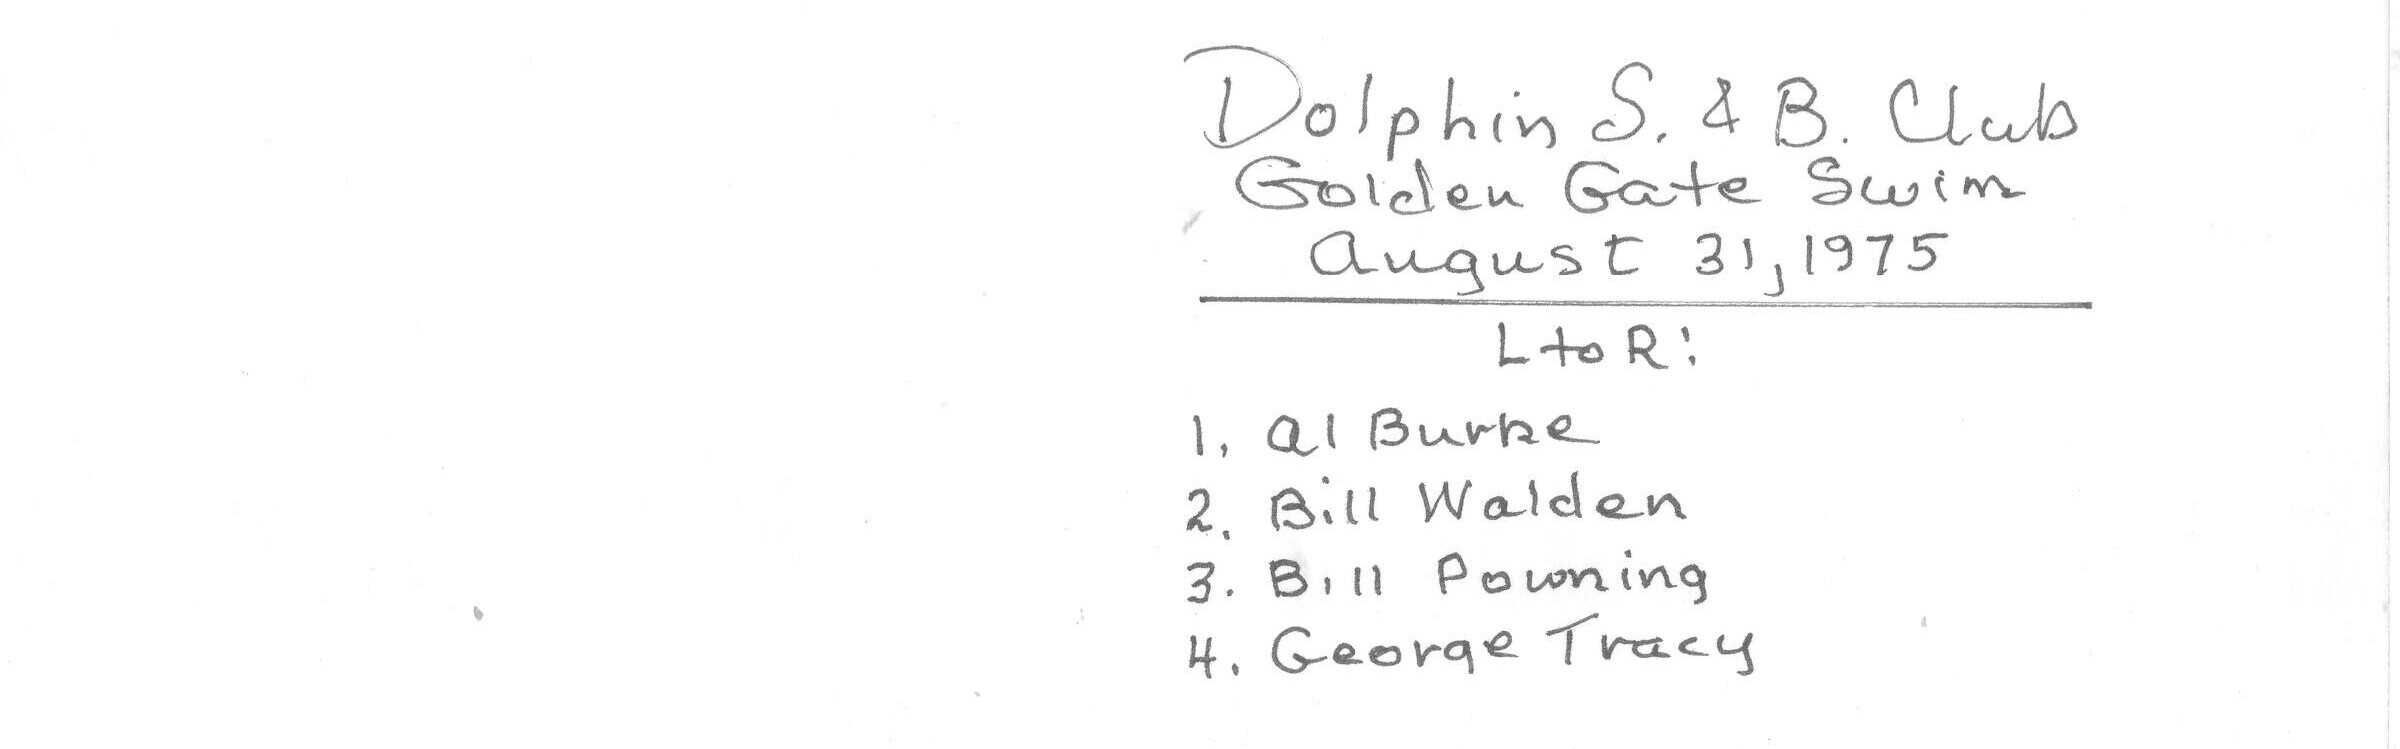 Dolphin S. & B. Club
Golden Gate Swim
August 31, 1975
L to R:
1. Al Burke
2. Bill Walden
3. Bill Powning
4. George Tracy